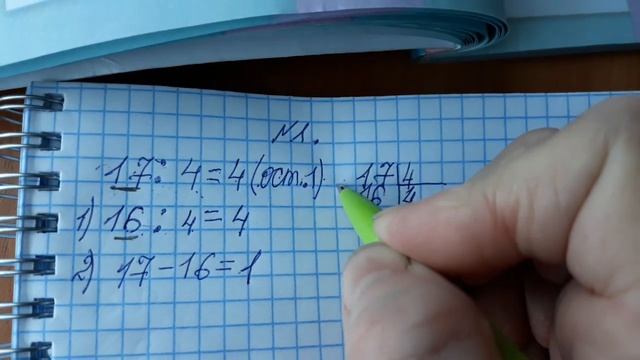 №1.
17 : 4 = 4 (ост.1) 17 4
1) 16 : 4 = 4 16 4
2) 17 - 16 = 1